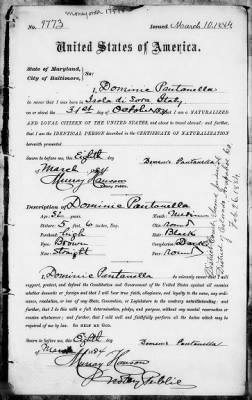 No. 9773 Issued March 10. 1884
United States of America.
State of Maryland,
City of Baltimore,
ss:
I, Dominic Pantanella
do swear that I was born in Isola di Sora Italy
on the 31st day of October that I am a NATURALIZED
AND LOYAL CITIZEN OF THE UNITED STATES, and about to travel abroad; and further, that
I am the IDENTICAL PERSON described in the CERTIFICATE OF NATURALIZATION
herewith presented
Sworn to before us, this Eighth
day of March 1884
Murray Hanson
Notary Public
Dominic Pantanella
Description of Dominic Pantanella
Age, 32 years. Mouth, Medium
Stature, 5 feet, 6 inches, Eng. Chin, Round
Forehead, High Hair, Black
Eyes, Brown Complexion, Dark
Nose, Straight Face, Round
I, Dominic Pantanella do solemnly swear that I will
support, protect, and defend the Constitution and Government of the United States against all enemies
whether domestic or foreign; and that I will bear true faith, allegiance, and loyalty to the same, any ordi-
nance, resolution, or law of any State, Convention, or Legislature to the contrary notwithstanding; and
further, that I do this with a full determination, pledge, and purpose, without any mental reservation or
evasion whatsoever; and further, that I will well and faithfully perform all the duties which may be
required of me by law. So HELP ME GOD.
Sworn to before me, this Eighth
day of March 1884
Dominic Pantanella
Murray Hanson
Notary Public